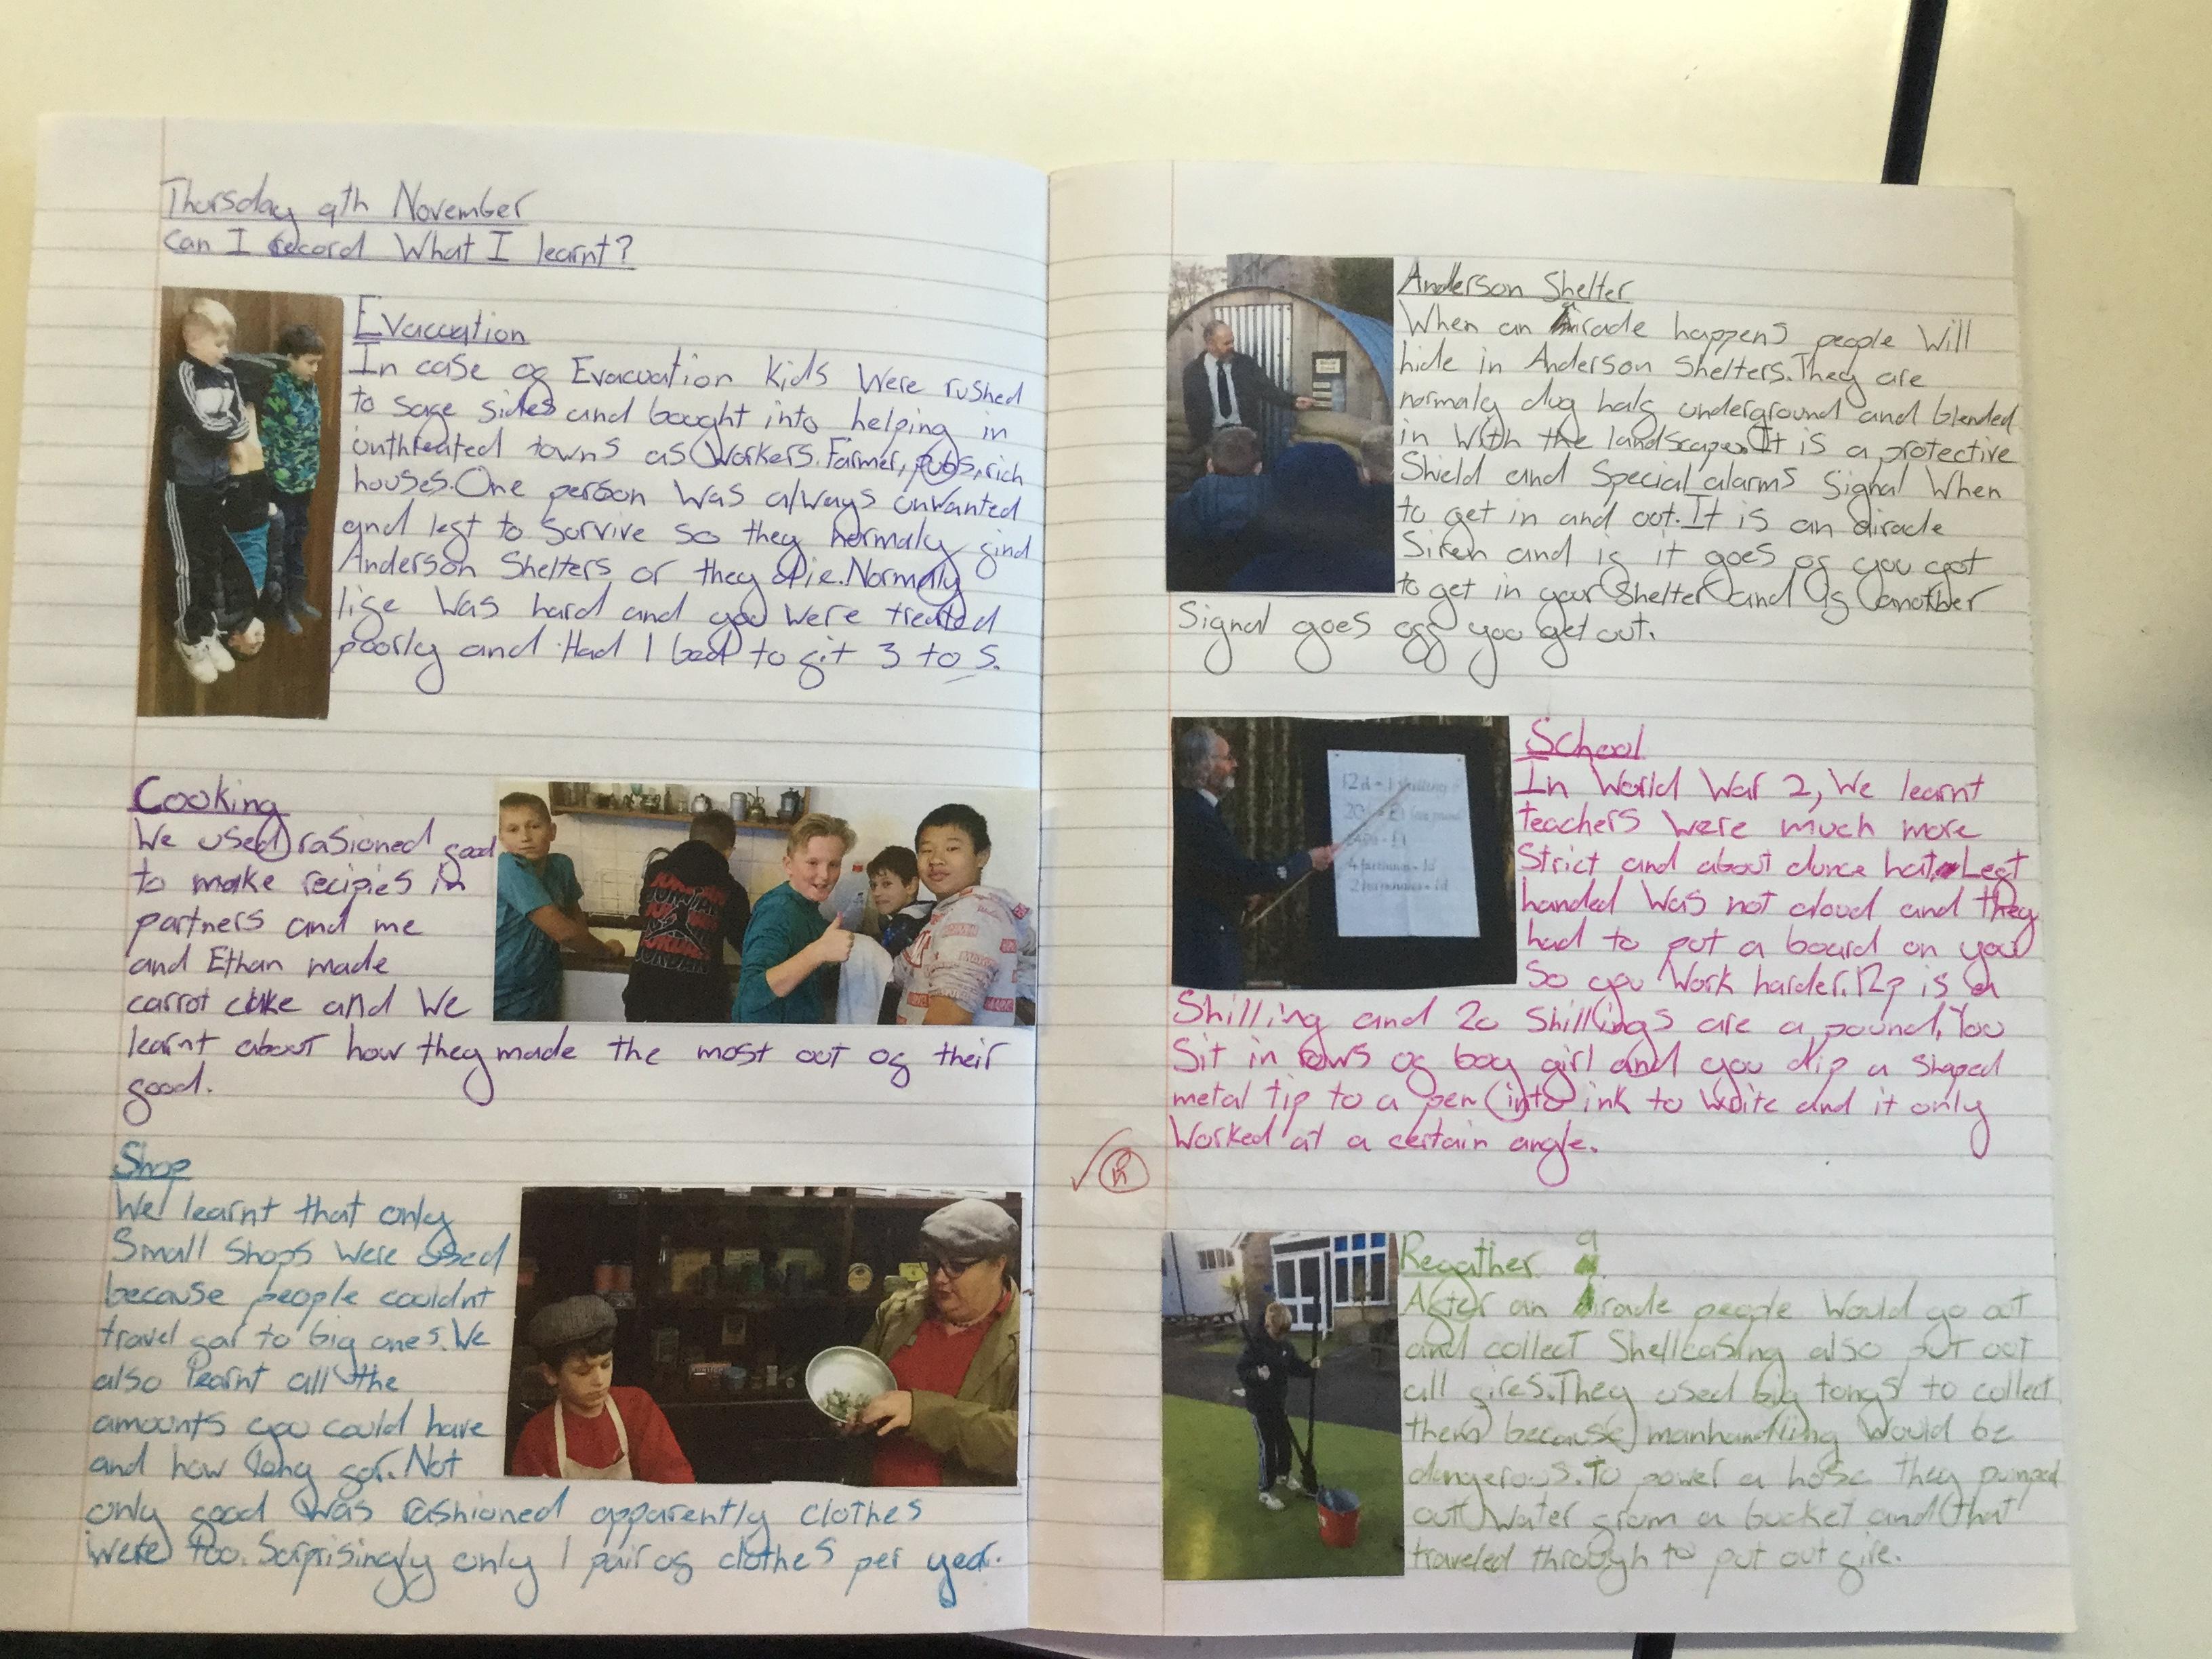 Thursday 9th November
Can I record What I learnt?
Evacuation
In case of Evacuation kids Were rushed
to safe sides and bought into helping in
unthreated towns as Workers. Farmer, pubs, rich
houses. One person Was always unwanted
and left to Survive so they normaly find
Anderson Shelters or they die. Normaly
life Was hard and you Were treated
poorly and Had 1 bed to fit 3 to 5.
Cooking
We used rasioned food
to make recipies in
partners and me
and Ethan made
carrot cake and We
learnt about how they made the most out of their
food.
Shop
We learnt that only
Small Shops Were used
because people couldnt
travel far to big ones. We
also learnt all the
amounts you could have
and how long for. Not
only food Was rashioned apparently clothes
Were too. Surprisingly only 1 pair of clothes per year.
Anderson Shelter
When an airade happens people Will
hide in Anderson Shelters. They are
normaly dug half underground and blended
in With the landscape. It is a protective
Shield and Special alarms Signal When
to get in and out. It is an airade
Siren and if it goes of you got
to get in your Shelter and if another
Signal goes off you get out.
School
In World War 2, We learnt
teachers Were much more
Strict and about dunce hat. Left
handed Was not aloud and they
had to put a board on you
So you Work harder. 12p is a
Shilling and 20 Shillings are a pound. You
Sit in rows of boy girl and you dip a Shaped
metal tip to a pen into ink to Write and it only
Worked at a certain angle.
12d = 1 shilling
4 farthings = 1d
2 hapennies = 1d
Regather
After an airade people Would go out
and collect Shellcasing also put out
all fires. They used big tongs to collect
them because manhandling Would be
dangerous. To power a hose they pumped
out Water from a bucket and that
traveled through to put out fire.